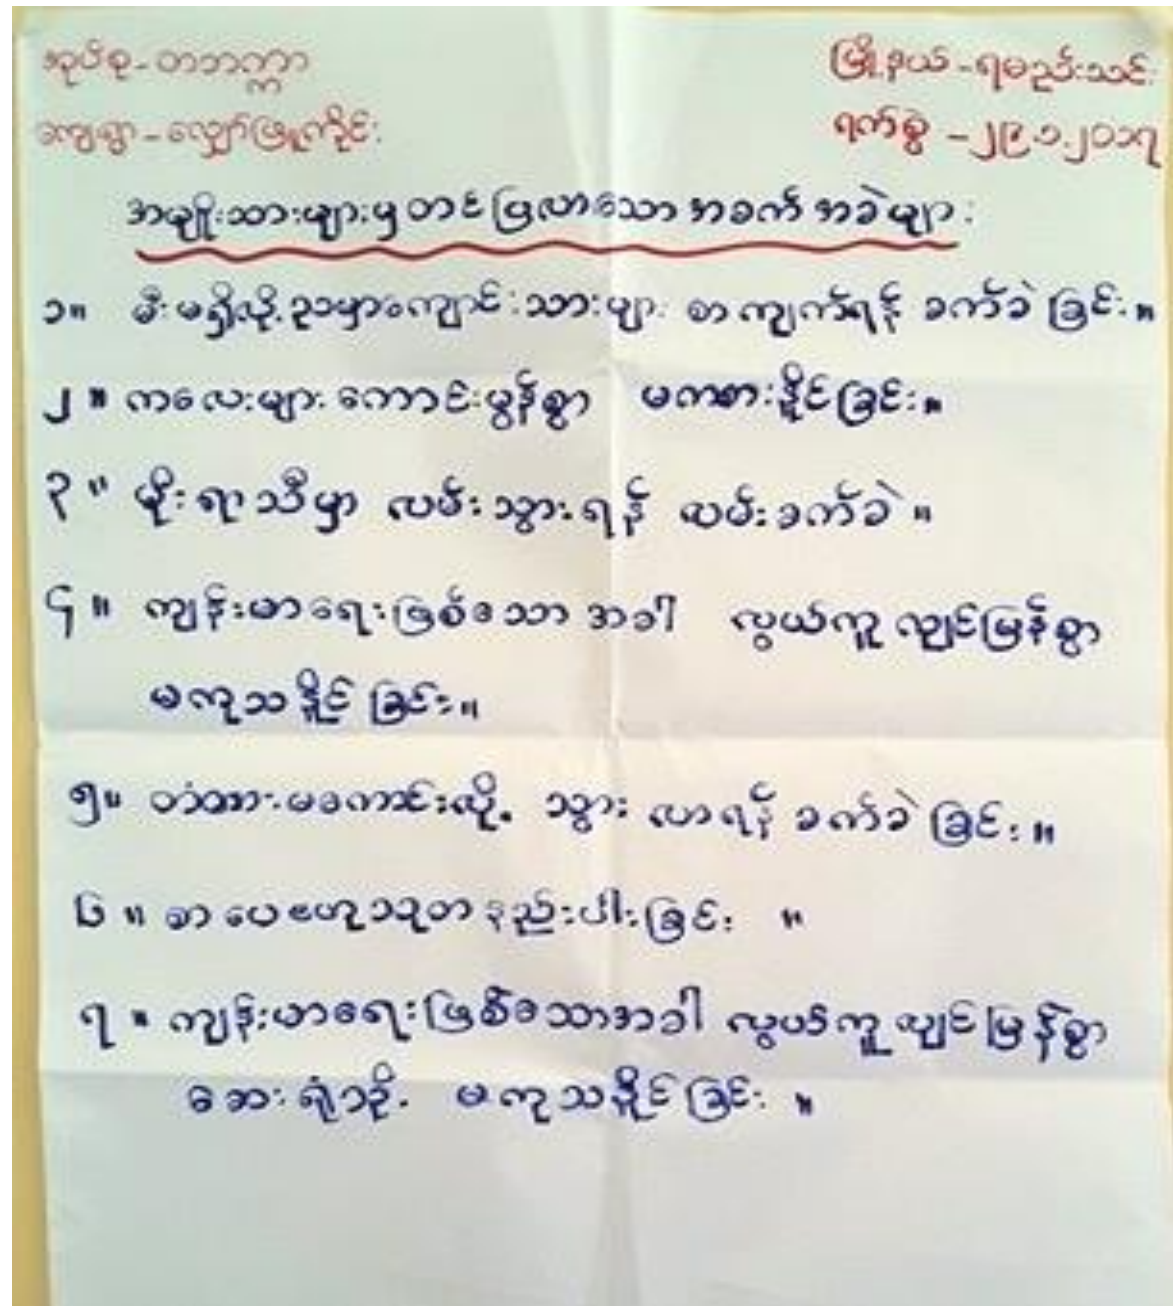 အုပ်စု-တဘက္ကာ
မြို့နယ်-ရမည်းသင်း
ကျေးရွာ-လျှော်ဖြူကိုင်း
ရက်စွဲ-၂၉.၁.၂၀၁၇
အမျိုးသားများမှတင်ပြလာသောအခက်အခဲများ
၁။ မီးမရှိလို့ညမှာကျောင်းသားများ စာကျက်ရန် ခက်ခဲခြင်း။
၂။ ကလေးများကောင်းမွန်စွာ မကစားနိုင်ခြင်း။
၃။ မိုးရာသီမှာ လမ်းသွားရန် လမ်းခက်ခဲ။
၄။ ကျန်းမာရေးဖြစ်သောအခါ လွယ်ကူလျင်မြန်စွာ
မကုသနိုင်ခြင်း။
၅။ တံတားမကောင်းလို့ သွားလာရန်ခက်ခဲခြင်း။
၆။ စာပေဗဟုသုတနည်းပါးခြင်း။
၇။ ကျန်းမာရေးဖြစ်သောအခါ လွယ်ကူလျင်မြန်စွာ
ဆေးရုံသို့ မကုသနိုင်ခြင်း။